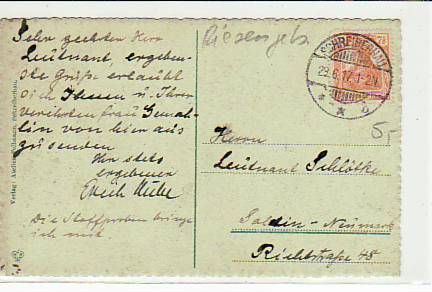 Sehr geehrter Herr
Leutnant, ergeben-
ste Grüße erlaubt
sich Ihnen u. Ihrer
verehrten Frau Gemah-
lin von hier aus
zu senden
Ihr stets
ergebener
Erich
Die Stoffproben bringe
ich mit
Riesengeb
SCHREIBERHAU
29.6.17.1-2N
* * * b
Herrn
Leutnant Schlötke
Soldin-Neumark
Richtstraße 48
5,-
Verlag: